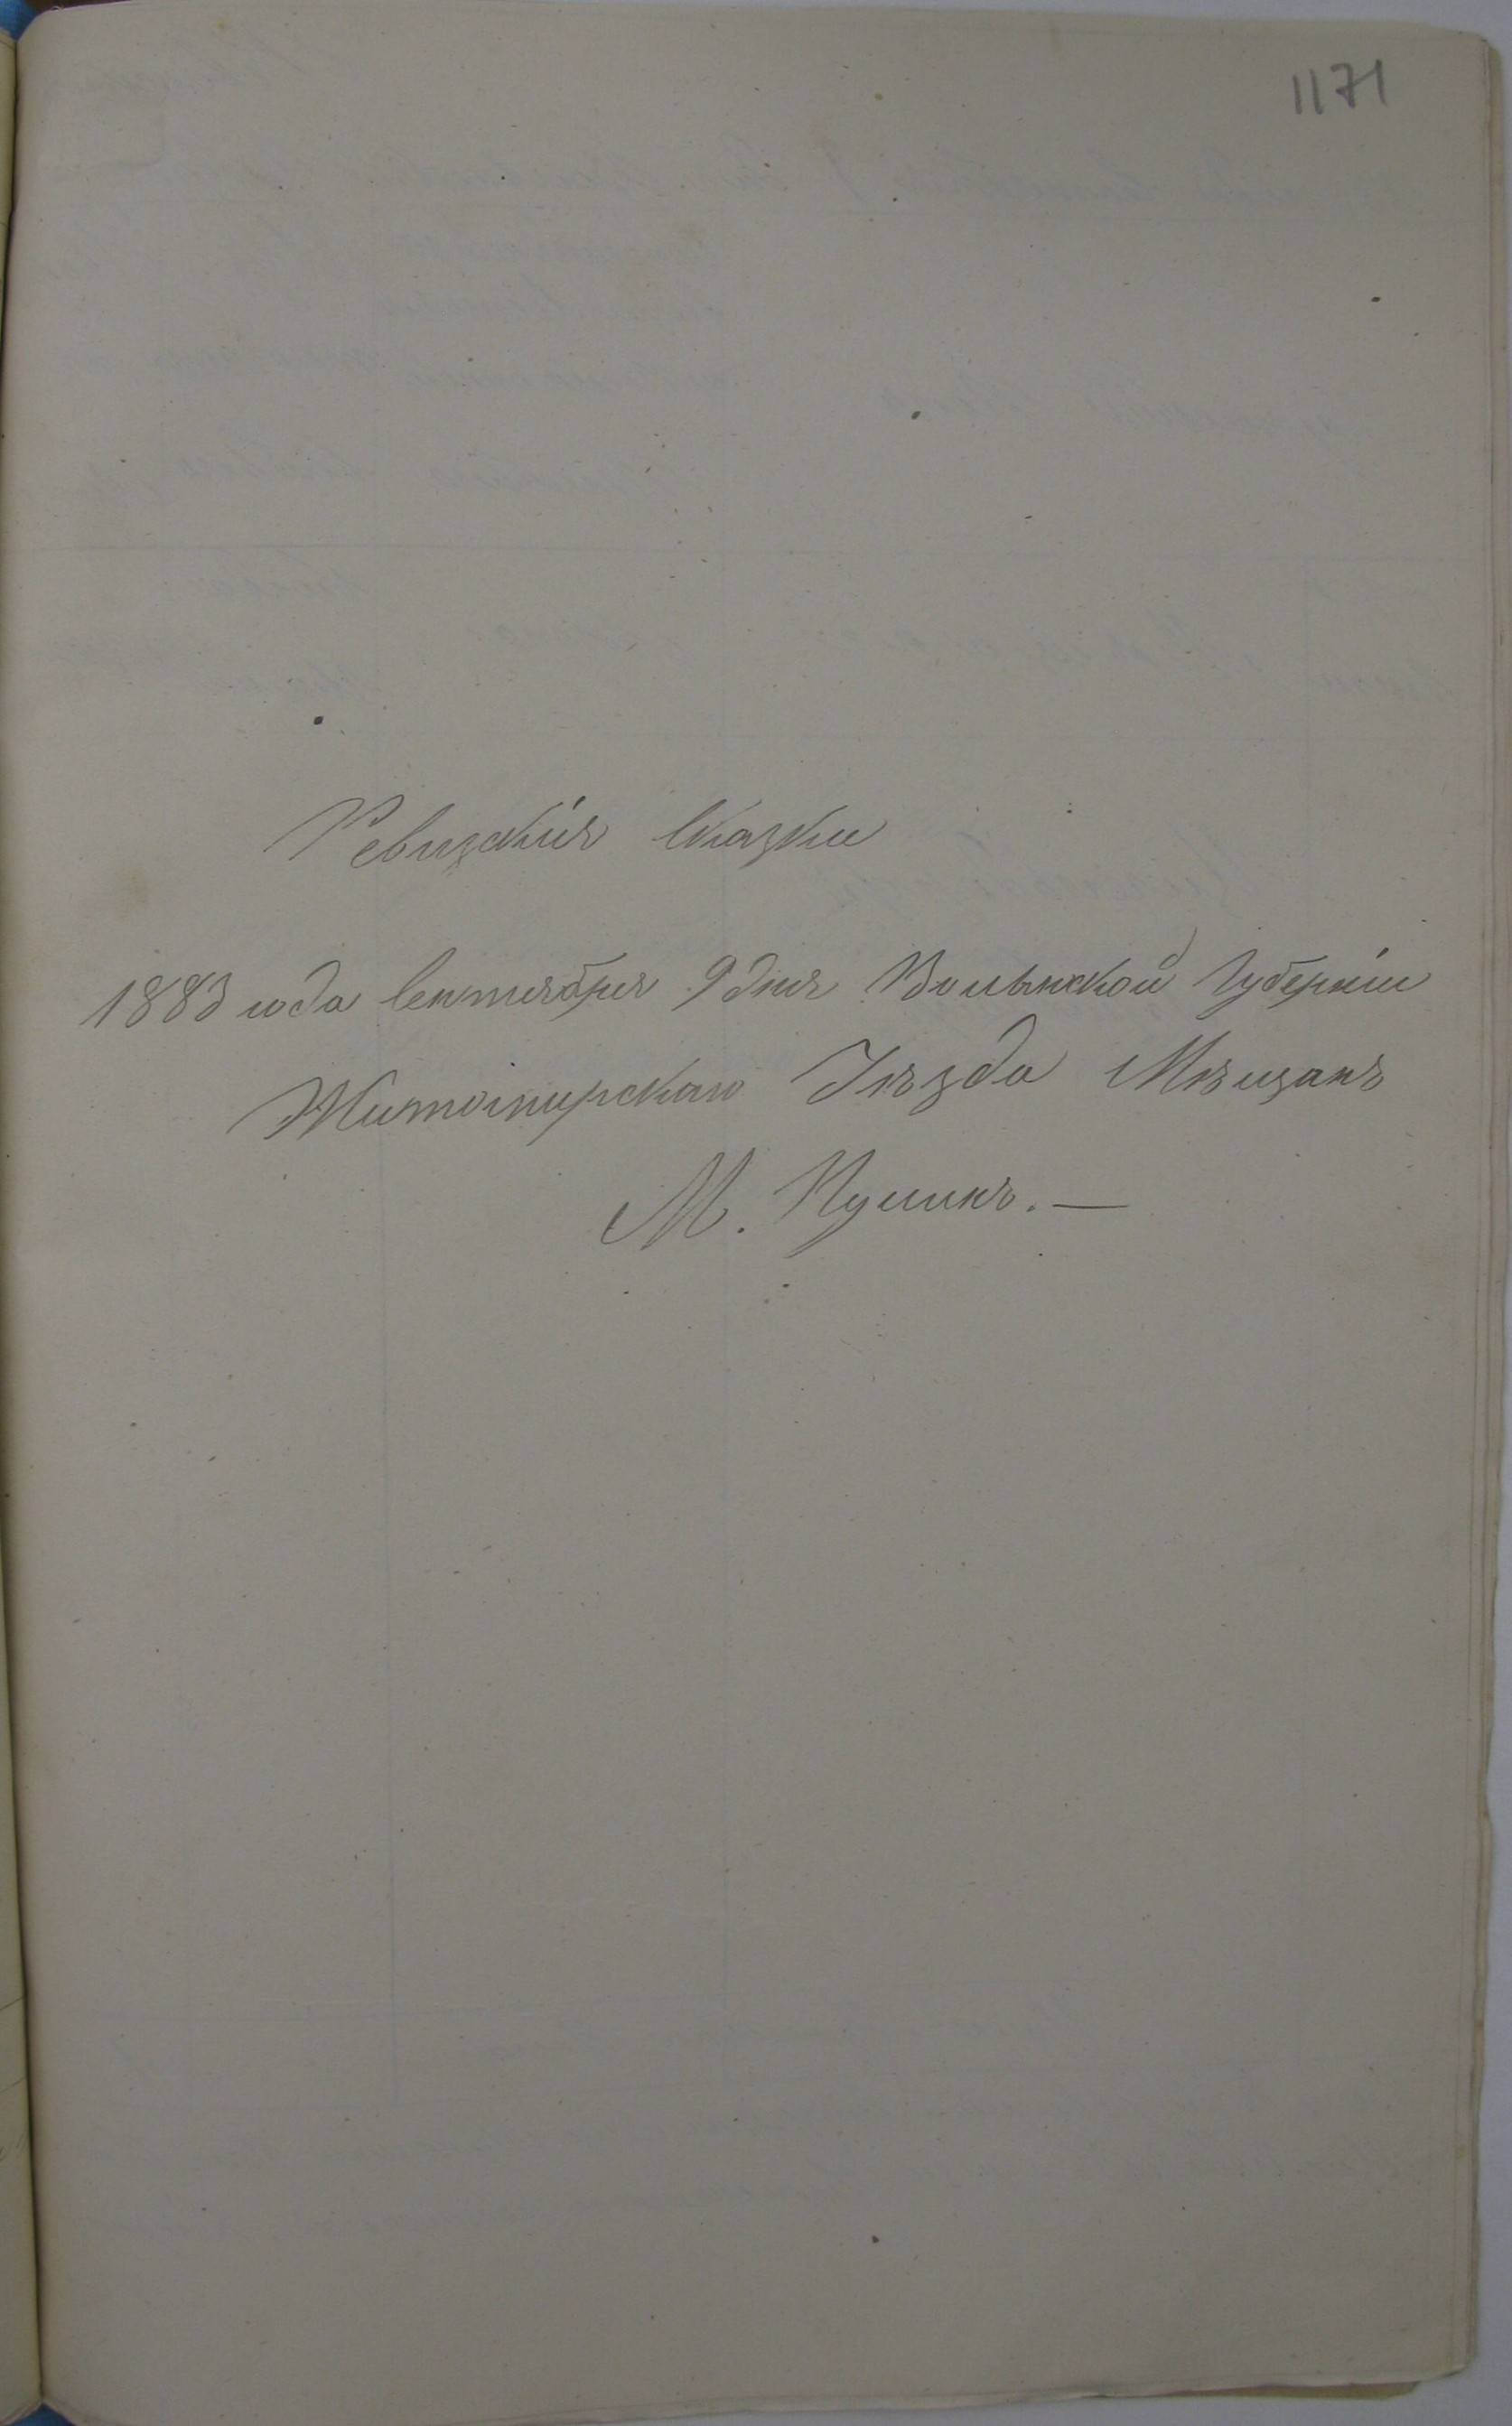 1171
Ревизскія Сказки
1883 года Сентября 9 дня Волынской Губерніи
Житомирскаго Уѣзда Мѣщанъ
М. Пулинъ. —